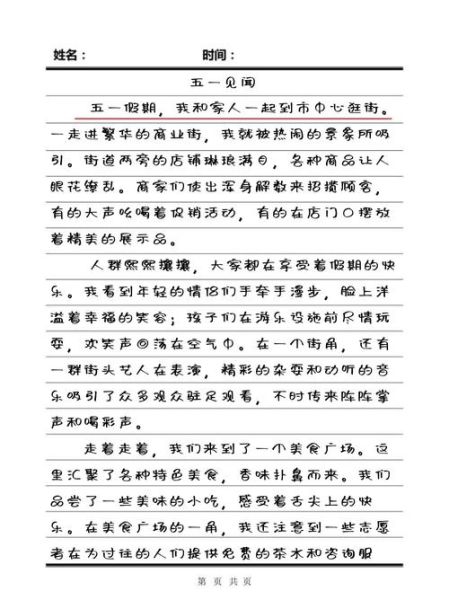 姓名： 时间：
五一见闻
五一假期，我和家人一起到市中心逛街。
一走进繁华的商业街，我就被热闹的景象所吸
引。街道两旁的店铺琳琅满目，各种商品让人
眼花缭乱。商家们使出浑身解数来招揽顾客，
有的大声吆喝着促销活动，有的在店门口摆放
着精美的展示品。
人群熙熙攘攘，大家都在享受着假期的快
乐。我看到年轻的情侣们手牵手漫步，脸上洋
溢着幸福的笑容；孩子们在游乐设施前尽情玩
耍，欢笑声回荡在空气中。在一个街角，还有
一群街头艺人在表演，精彩的杂耍和动听的音
乐吸引了众多观众驻足观看，不时传来阵阵掌
声和喝彩声。
走着走着，我们来到了一个美食广场。这
里汇聚了各种特色美食，香味扑鼻而来。我们
品尝了一些美味的小吃，感受着舌尖上的快
乐。在美食广场的一角，我还注意到一些志愿
者在为过往的人们提供免费的茶水和咨询服
第 页 共 页